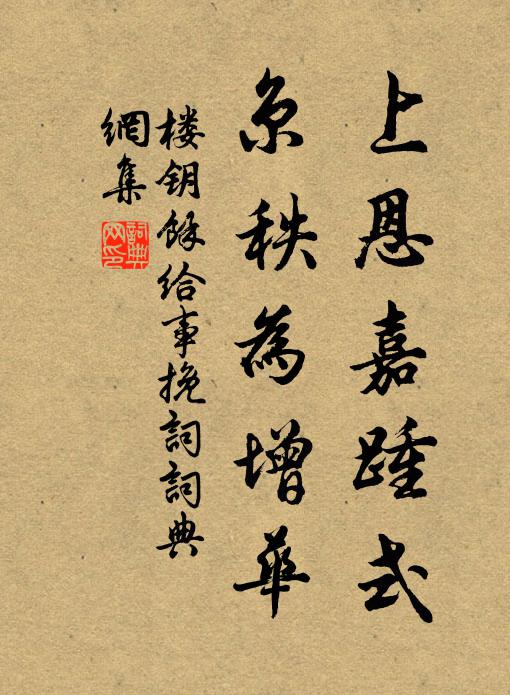 上恩嘉踵武
京秩為增華
楼钥餘给事挽詞詞典
網集
詞典
网印